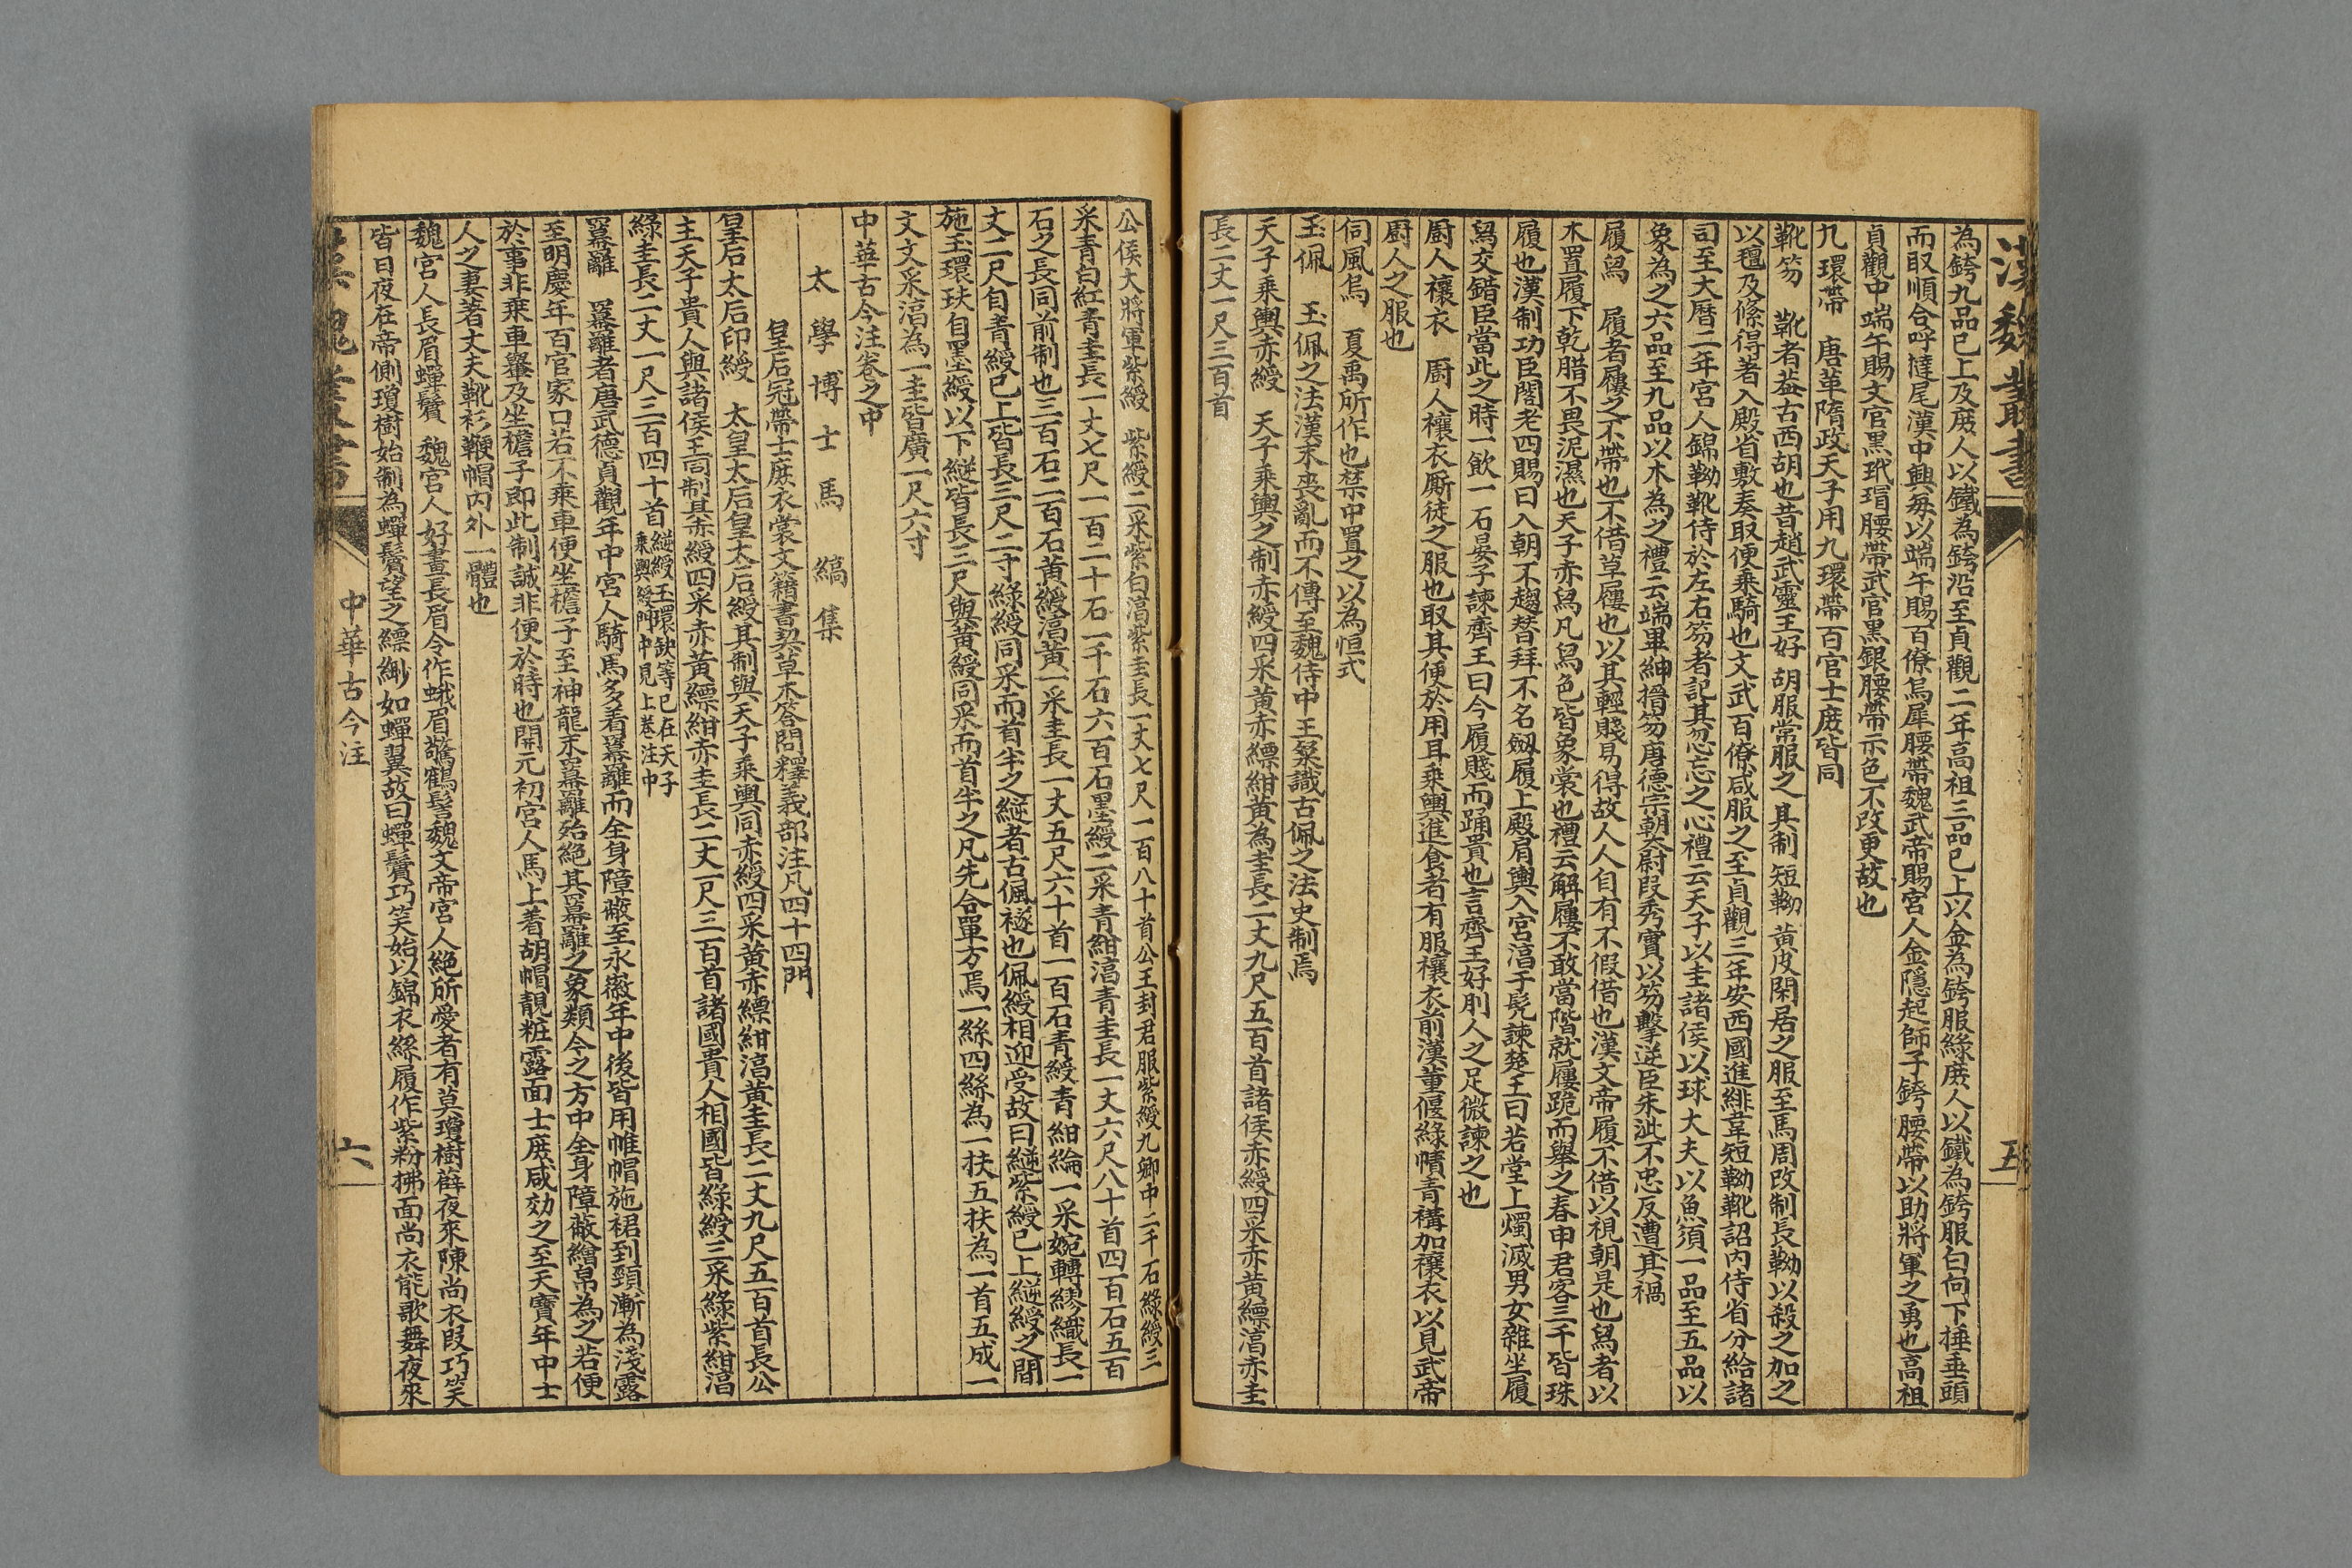 漢魏叢書
五
為銙九品已上及庶人以鐵為銙沿至貞觀二年高祖三品已上以金為銙服綠庶人以鐵為銙服白向下捶垂頭
而取順合呼撻尾漢中興每以端午賜百僚烏犀腰帶魏武帝賜宮人金隱起師子銙腰帶以助將軍之勇也高祖
貞觀中端午賜文官黑玳瑁腰帶武官黑銀腰帶示色不改更故也
九環帶 唐革隋政天子用九環帶百官士庶皆同
靴笏 靴者葢古西胡也昔趙武靈王好 胡服常服之 其制 短靿 黃皮閑居之服至馬周改制長靿以殺之加之
以氊及絛得著入殿省敷奏取便乘騎也文武百僚咸服之至貞觀三年安西國進緋韋短靿靴詔內侍省分給諸
司至大曆二年宮人錦靿靴侍於左右笏者記其忽忘之心禮云天子以圭諸侯以球大夫以魚須一品至五品以
象為之六品至九品以木為之禮云端畢紳搢笏唐德宗朝太尉叚秀實以笏擊逆臣朱泚不忠反遭其禍
履舄 履者屨之不帶也不借草屨也以其輕賤易得故人人自有不假借也漢文帝履不借以視朝是也舄者以
木置履下乾腊不畏泥濕也天子赤舄凡舄色皆象裳也禮云解屨不敢當階就屨跪而舉之春申君客三千皆珠
履也漢制功臣閣老四賜曰入朝不趨替拜不名劔履上殿肩輿入宮淳于髡諫楚王曰若堂上燭滅男女雜坐履
舄交錯臣當此之時一飲一石晏子諫齊王曰今履賤而踊貴也言齊王好刖人之足微諫之也
厨人襐衣 厨人襐衣厮徒之服也取其便於用耳乘輿進食者有服襐衣前漢董偃綠幘青褠加襐衣以見武帝
厨人之服也
伺風烏 夏禹所作也禁中置之以為恒式
玉佩 玉佩之法漢末喪亂而不傳至魏侍中王粲識古佩之法史制焉
天子乘輿赤綬 天子乘輿之制赤綬四采黃赤縹紺黃為圭長二丈九尺五百首諸侯赤綬四采赤黃縹淳赤圭
長二丈一尺三百首
公侯大將軍紫綬 紫綬二采紫白淳紫圭長一丈七尺一百八十首公王封君服紫綬九卿中二千石綠綬三
采青白紅青圭長一丈七尺一百二十石一千石六百石墨綬二采青紺淳青圭長一丈六尺八十首四百石五百
石之長同前制也三百石二百石黃綬淳黃一采圭長一丈五尺六十首一百石青綬青紺綸一采婉轉繆織長一
丈二尺自青綬已上皆長三尺二寸綠綬同采而首半之縌者古佩襚也佩綬相迎受故曰縌紫綬已上縌綬之間
施玉環玦自墨綬以下縌皆長三尺與黃綬同采而首半之凡先合單方焉一絲四絲為一扶五扶為一首五成一
文文采淳為一圭皆廣一尺六寸
中華古今注卷之中
太學博士馬縞集
皇后冠帶士庶衣裳文籍書契草木荅問釋義部注凡四十四門
皇后太后印綬 太皇太后皇太后綬其制與天子乘輿同赤綬四采黃赤縹紺淳黃圭長二丈九尺五百首長公
主天子貴人與諸侯王同制其赤綬四采赤黃縹紺赤圭長二丈一尺三百首諸國貴人相國皆綠綬三采綠紫紺淳
綠圭長二丈一尺二百四十首縌綬玉環缺等已在天子乘輿綬門中見上卷注中
冪䍦 冪䍦者唐武德貞觀年中宮人騎馬多着冪䍦而全身障蔽至永徽年中後皆用帷帽施裙到頸漸為淺露
至明慶年百官家口若不乘車便坐檐子至神龍末冪䍦殆絕其冪䍦之象類今之方巾全身障蔽繒帛為之若便
於事非乘車轝及坐檐子即此制誠非便於時也開元初宮人馬上着胡帽靚粧露面士庶咸効之至天寶年中士
人之妻著丈夫靴衫鞭帽內外一體也
魏宮人長眉蟬鬢 魏宮人好畫長眉令作蛾眉驚鶴髻魏文帝宮人絕所愛者有莫瓊樹薛夜來陳尚衣叚巧笑
皆日夜在帝側瓊樹始制為蟬鬢望之縹緲如蟬翼故曰蟬鬢巧笑始以錦衣絲履作紫粉拂面尚衣能歌舞夜來
漢魏叢書
中華古今注
六